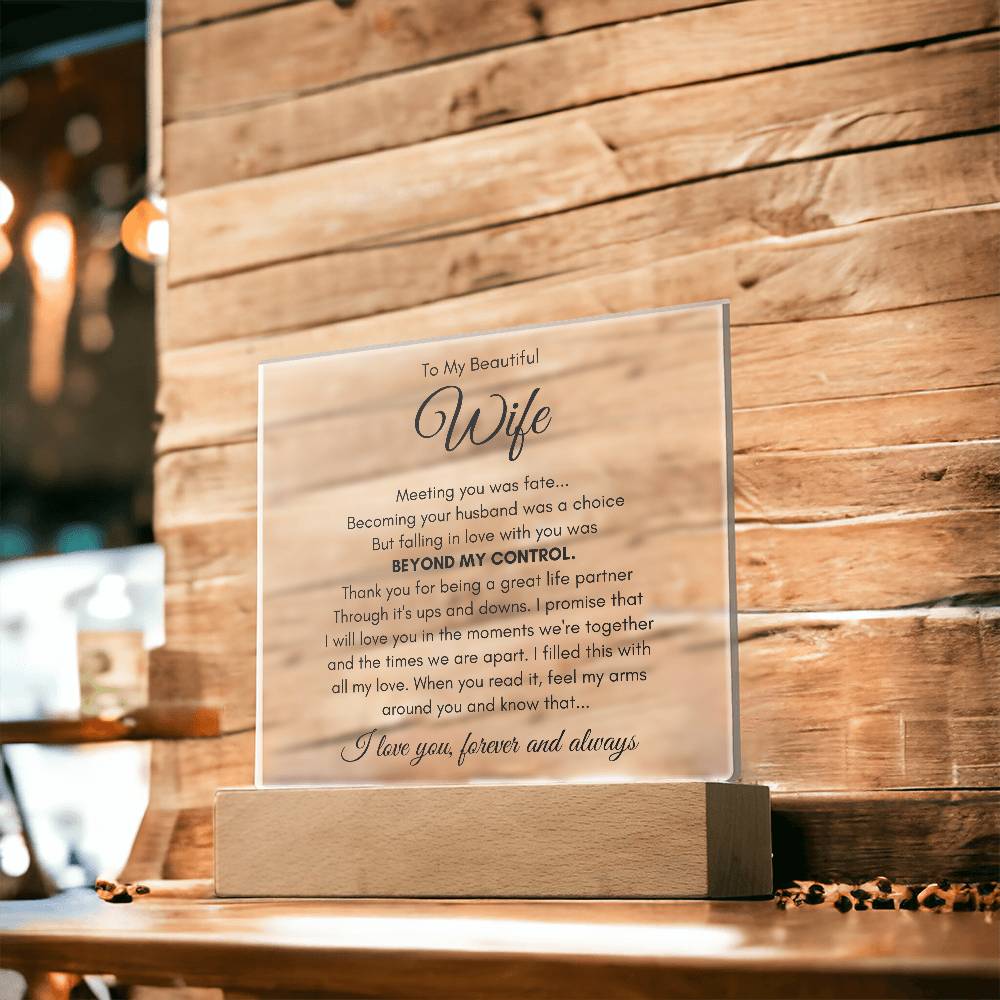 To My Beautiful
Wife
Meeting you was fate...
Becoming your husband was a choice
But falling in love with you was
BEYOND MY CONTROL.
Thank you for being a great life partner
Through it's ups and downs. I promise that
I will love you in the moments we're together
and the times we are apart. I filled this with
all my love. When you read it, feel my arms
around you and know that...
I love you, forever and always